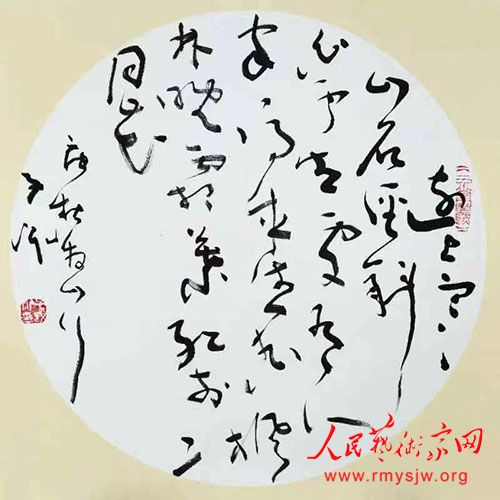 遠上寒
山石徑斜
白雲生處有人
家停車坐愛楓
林晚霜葉紅於二
月花
唐杜牧山行
人民藝術家网
www.rmysjw.org